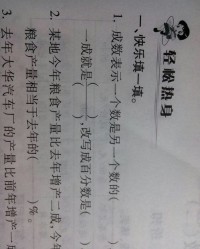 轻松热身
一、快乐填一填。
1. 成数表示一个数是另一个数的(
一成就是( )/( ),改写成百分数是(
2. 某地今年粮食产量比去年增产二成,今年
粮食产量相当于去年的( )%。
3. 去年大华汽车厂的产量比前年增产